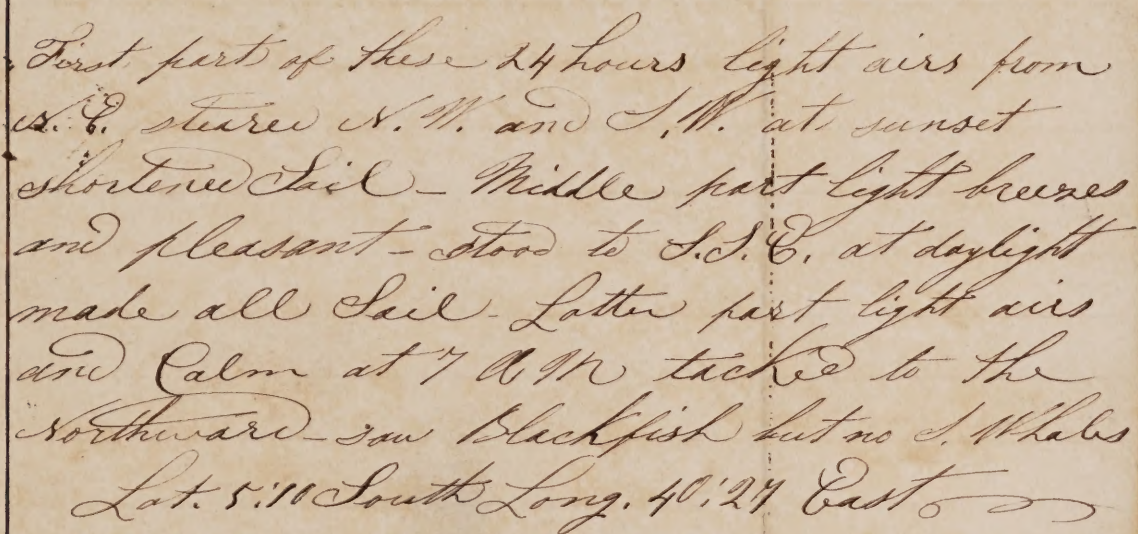 First part of these 24 hours light airs from
N. E. steared N. W. and S. W. at sunset
shortened Sail - Middle part light breezes
and pleasant - stood to S.S.E. at daylight
made all Sail - Latter part light airs
and Calm at 7 A M tacked to the
Northward - saw Blackfish but no S. Whales
Lat. 5:10 South Long. 40:27 East